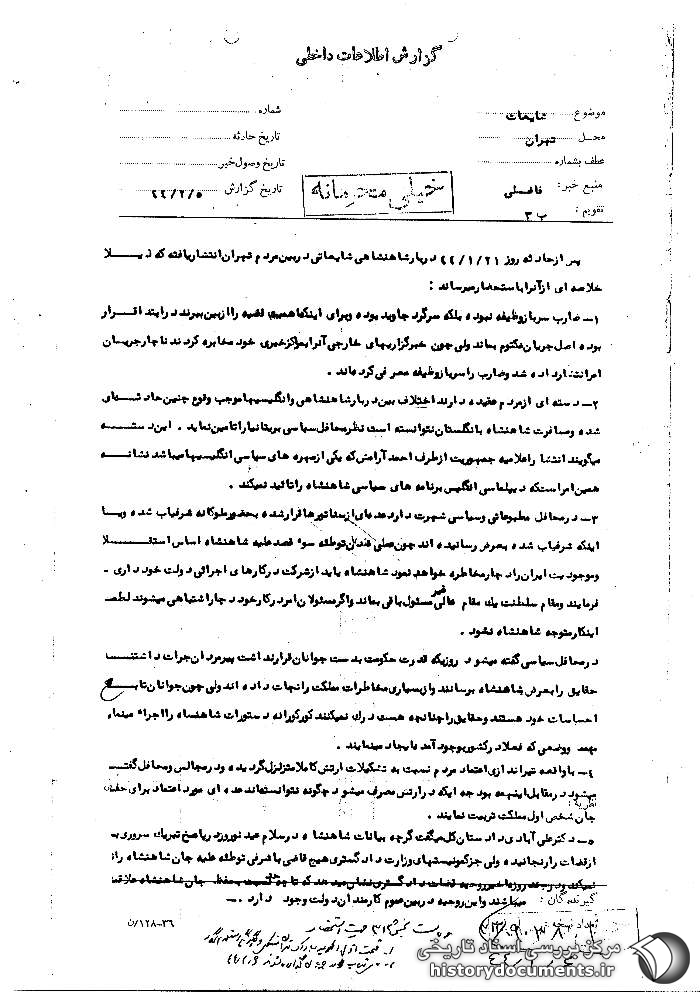 گزارش اطلاعات داخلی
موضوع شایعات
محل تهران
عطف بشماره
منبع خبر: فاضلی
تقویم: ب ۳
شماره
تاریخ حادثه
تاریخ وصول خبر
تاریخ گزارش ۴۴/۲/۵
خیلی محرمانه
پس از حادثه روز ۴۴/۱/۲۱ دربار شاهنشاهی شایعاتی در بین مردم تهران انتشار یافته که ذیلا
خلاصه ای از آنرا باستحضار میرساند :
۱- ضارب سرباز وظیفه نبوده بلکه سرگرد جاوید بوده و برای اینکه اهمیت قضیه را از بین ببرند در ابتدا قرار
بوده اصل جریان مکتوم بماند ولی چون خبرگزاریهای خارجی آنرا بمراکز خبری خود مخابره کردند ناچار جریان
امر انتشار داده شد و ضارب را سرباز وظیفه معرفی کرده‌اند .
۲- دسته ای از مردم عقیده دارند اختلاف بین دربار شاهنشاهی و انگلیسیها موجب وقوع چنین حادثه‌ای
شده و مسافرت شاهنشاه بانگلستان نتوانسته است نظر محافل سیاسی بریتانیا را تامین نماید . این دسته
میگویند انتشار اعلامیه جمهوریت از طرف احمد آرامش که یکی از مهره های سیاسی انگلیسیها میباشد نشانه
همین امر استکه دیپلماسی انگلیس برنامه های سیاسی شاهنشاه را تائید نمیکند .
۳- در محافل مطبوعاتی و سیاسی شهرت دارد عده‌ای از سناتورها قرار شده بحضور ملوکانه شرفیاب شده و یا
اینکه شرفیاب شده بعرض رسانیده اند چون عملی شدن توطئه سوء قصد علیه شاهنشاه اساس استقلال
و موجودیت ایران را دچار مخاطره خواهد نمود شاهنشاه باید از شرکت در کارهای اجرائی دولت خودداری -
فرمایند و مقام سلطنت یک مقام عالی غیر مسئول باقی بماند و اگر مسئولان امر در کار خود دچار اشتباهی میشوند لطمه
اینکار متوجه شاهنشاه نشود .
در محافل سیاسی گفته میشود روزیکه قدرت حکومت بدست جوانان قرار نداشت پیرمردان جرات داشتند
حقایق را بعرض شاهنشاه برسانند و از بسیاری مخاطرات مملکت را نجات داده اند ولی چون جوانان تابع
احساسات خود هستند و حقایق را چنانچه هست درک نمیکنند کورکورانه دستورات شاهنشاه را اجراء مینمایند
وضعی که فعلا در کشور بوجود آمده ایجاد مینمایند .
۴- با واقعه تیراندازی اعتماد مردم نسبت به تشکیلات ارتش کاملا متزلزل گردیده و در مجالس و محافل گفته
میشود در مقابل اینهمه بودجه ایکه در ارتش مصرف میشود چگونه نتوانسته‌اند عده ای مورد اعتماد برای حفظ
جان شخص اول مملکت تربیت نمایند .
نظریه :
۵- دکتر علی آبادی دادستان کل میگفت گرچه بیانات شاهنشاه در سلام عید نوروز در پاسخ تبریک سروری
قضات را رنجانیده ولی جز کمونیستهای وزارت دادگستری هیچ قاضی با شرفی توطئه علیه جان شاهنشاه را
نمیکند و در چند روز اخیر روحیه قضات دادگستری نشان میدهد که تا چه نسبت بحفظ جان شاهنشاه علاقه
میباشند و این روحیه در بین عموم کارمندان دولت وجود دارد .-
گیرندگان :
تعداد نسخه
۳۶-۱۲۸/ن
مرکز بررسی اسناد تاریخی
historydocuments.ir